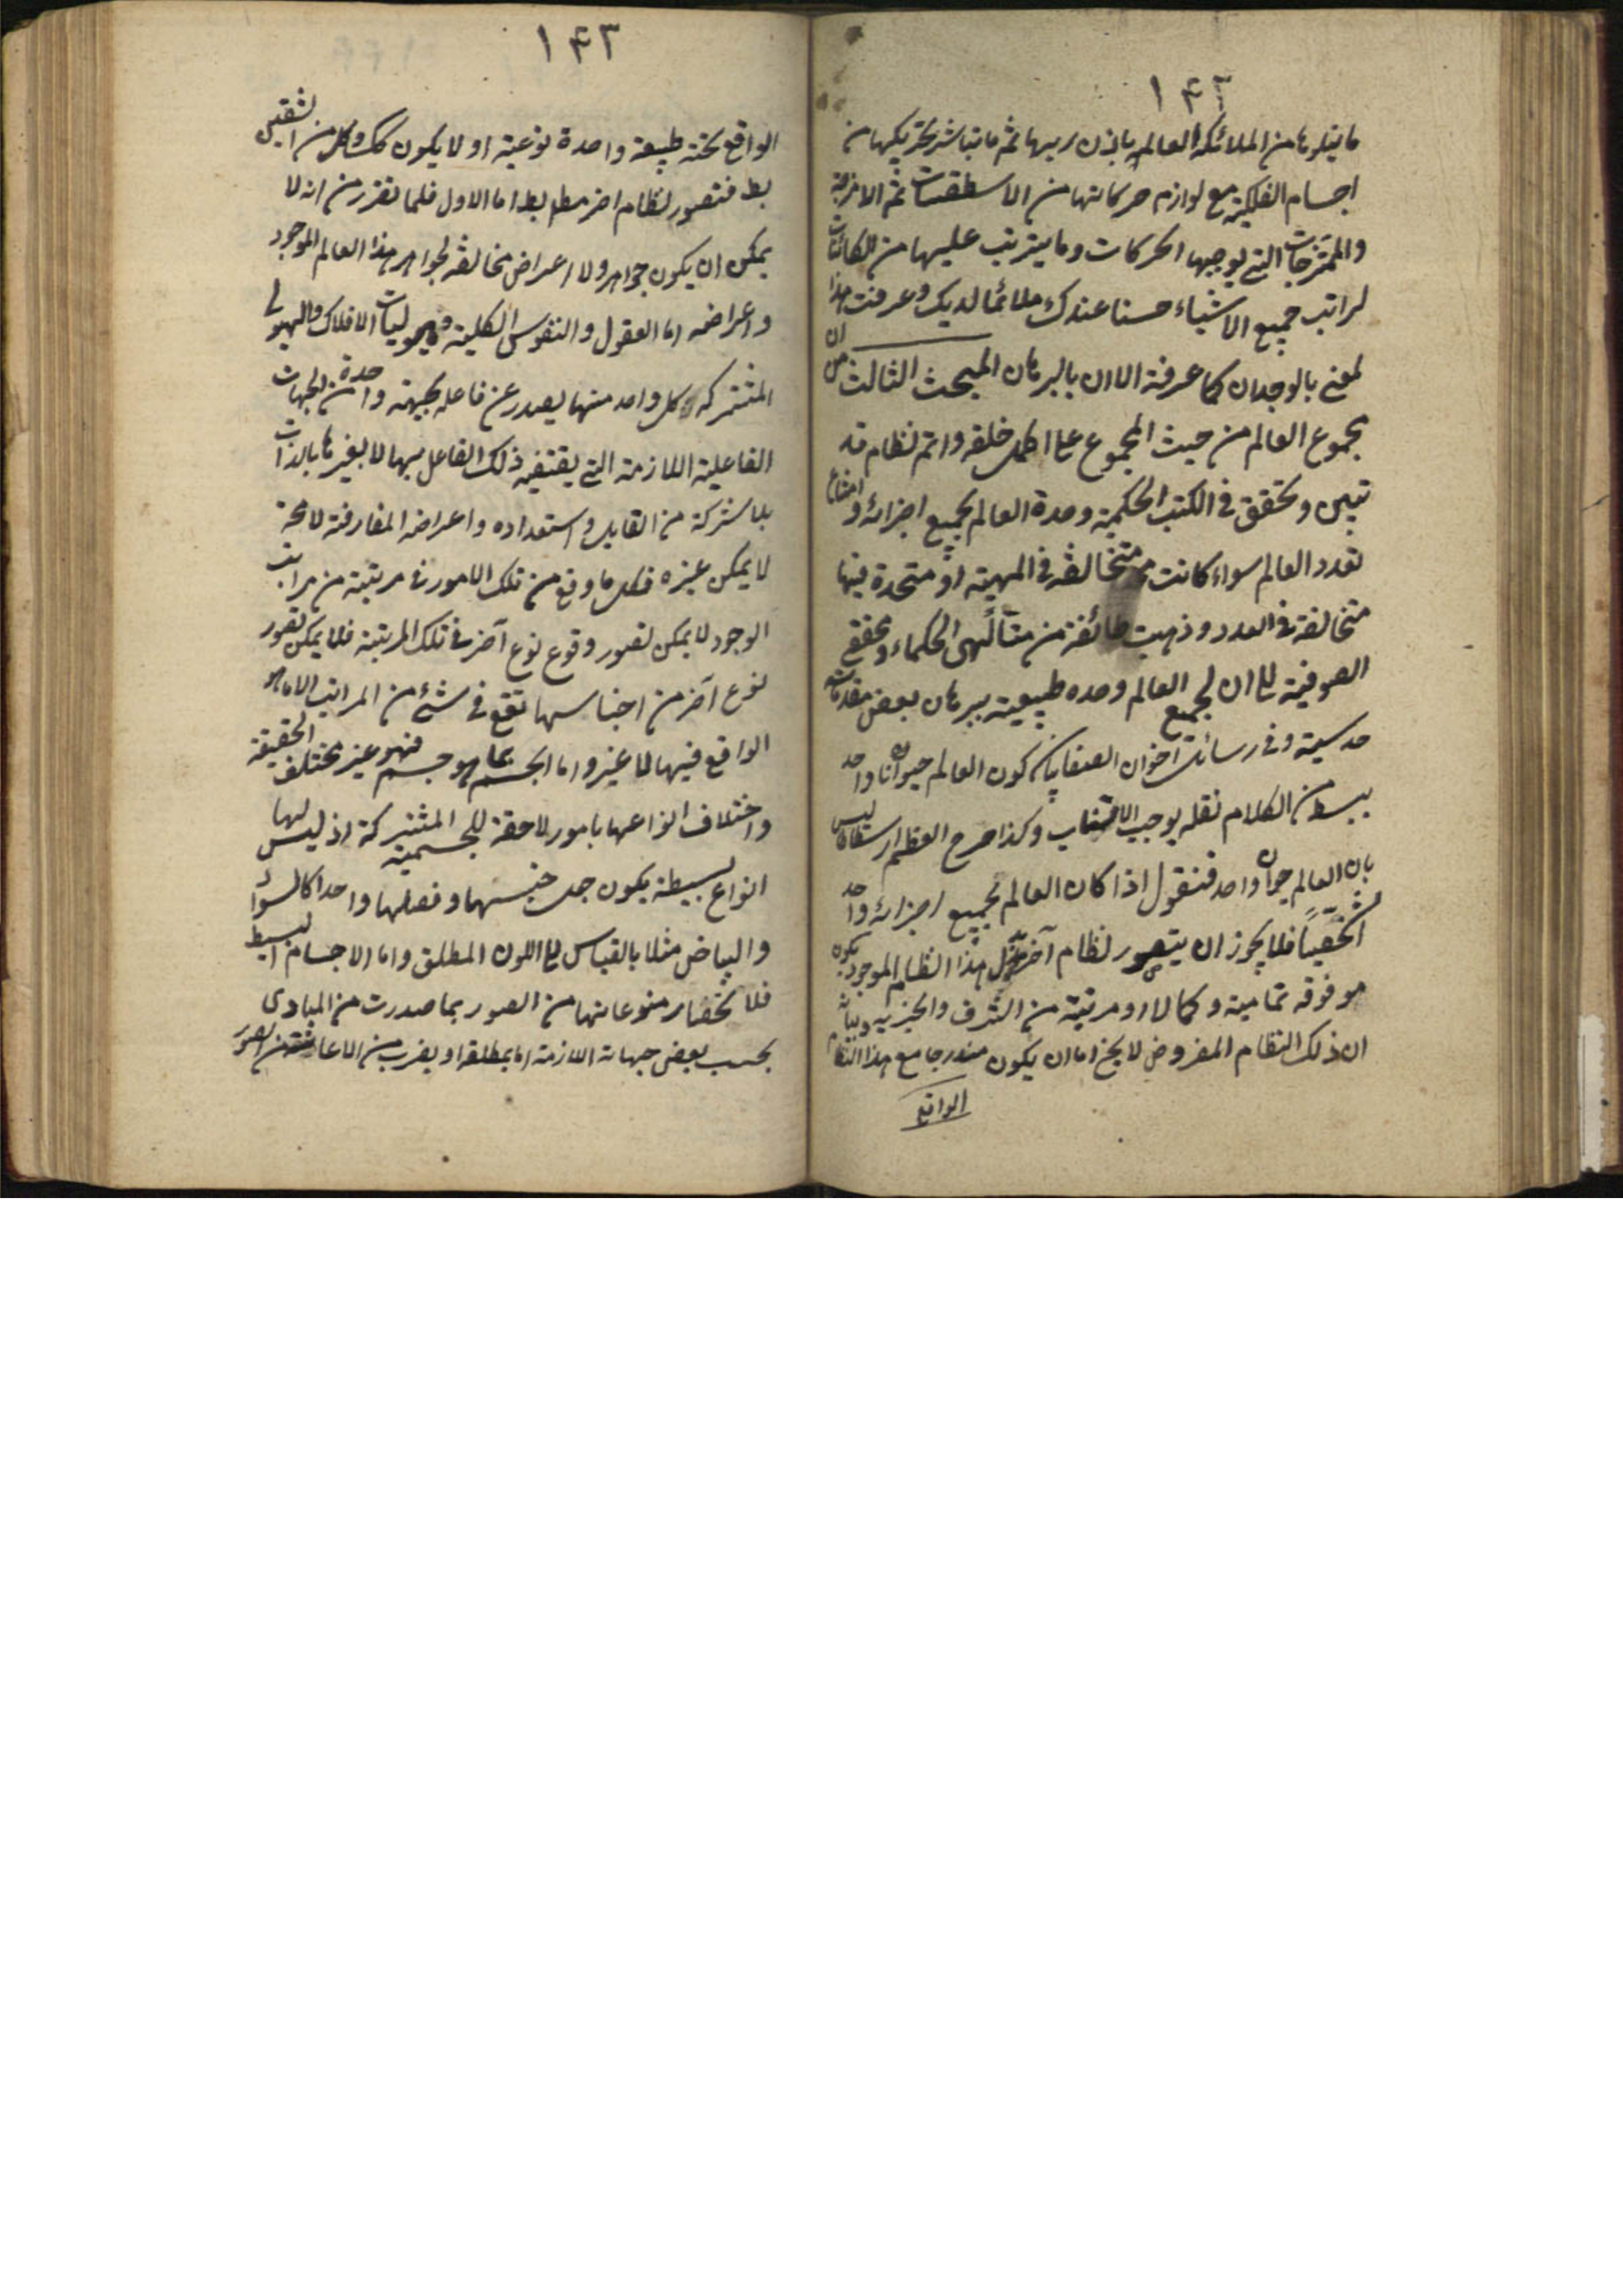 ١٤٢
ما يتلوها من الملائكة العالم باذن ربها ثم ما تباشر تحريكها من
اجسام الفلكية مع لوازم حركاتها من الاسطقسات ثم الامزجة
والممتزجات التي يوجبها الحركات وما يترتب عليها من الكائنات
لرايت جميع الاشياء حسنا عندك ملائما لديك وعرفت هذا
لمعنى بالوجدان كما عرفته الان بالبرهان المبحث الثالث ان
مجموع العالم من حيث المجموع على اكمل خلقه واتم نظام قد
تبين وتحقق في الكتب الحكمية وحدة العالم بجميع اجزائه وامتناع
تعدد العالم سواء كانت متخالفة في المهية او متحدة فيها
متخالفة في العدد وذهبت طائفة من متألهي الحكماء ومحققي
الصوفية الى ان لجميع العالم وحده طبيعية ببرهان بعض مقدماته
حدسية وفي رسائل اخوان الصفا بيان كون العالم حيوانا واحد
ببسط من الكلام نقله يوجب الاطناب وكذا صرح المعظم ارسطاطاليس
بان العالم حيوان واحد فنقول اذا كان العالم بجميع اجزائه واحد
شخصيا فلا يجوز ان يتصور نظام آخر بدل هذا النظام الموجود يكون
هو فوقه تمامية وكمالا او مرتبة من الشرف والخيرية وبيانه
ان ذلك النظام المفروض لا يخ اما ان يكون مندرجا مع هذا النظام
الواقع
١٤٣
الواقع تحته طبيعة واحدة نوعية او لا يكون كك وكل من الشقين
بط فتصور نظام اخر مطلقا بط اما الاول فلما تقرر من انه لا
يمكن ان يكون جواهر ولا اعراض مخالفة لجواهر هذا العالم الموجود
واعراضه اما العقول والنفوس الكلية وهيوليات الافلاك والهيولى
المشتركة فكل واحد منها يصدر عن فاعله بجهة واحدة من الجهات
الفاعلية اللازمة التي يقتضيه ذلك الفاعل بها لا بغيرها بالذات
بلا شركة من القابل واستعداده واعراضه المفارقة لانه
لا يمكن غيره فكل ما وقع من تلك الامور في مرتبة من مراتب
الوجود لا يمكن تصور وقوع نوع آخر في تلك المرتبة فلا يمكن تصور
نوع آخر من اجناسها تقع في شئ من المراتب الا ما هو
الواقع فيها لا غير واما الجسم بما هو جسم فهو غير مختلف الحقيقة
واختلاف انواعها بامور لاحقة للجسمية المشتركة اذ ليس لها
انواع بسيطة يكون جعل جنسها وفصلها واحدا كالسواد
والبياض مثلا بالقياس الى اللون المطلق واما الاجسام البسيط
فلانحصار منوعاتها من الصور بما صدرت من المبادى
بحسب بعض جهاته اللازمة اما مطلقا او بضرب من الاعانة من الصور